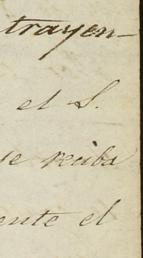 trayen-
el S.
se reciba
ente el